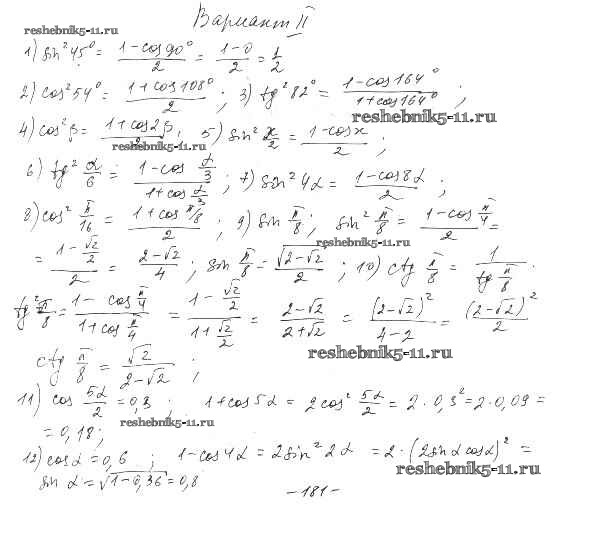 Вариант II
reshebnik5-11.ru
1) sin²45° = (1-cos90°)/2 = (1-0)/2 = 1/2
2) cos²54° = (1+cos108°)/2 ; 3) tg²82° = (1-cos164°)/(1+cos164°) ;
reshebnik5-11.ru
4) cos²β = (1+cos2β)/2 ; 5) sin² x/2 = (1-cosx)/2 ;
reshebnik5-11.ru
6) tg² α/6 = (1-cos α/3)/(1+cos α/3) ; 7) sin²4α = (1-cos8α)/2 ;
8) cos² π/16 = (1+cos π/8)/2 ; 9) sin π/8 ; sin² π/8 = (1-cos π/4)/2 =
reshebnik5-11.ru
= (1-√2/2)/2 = (2-√2)/4 ; sin π/8 = √(2-√2)/2 ; 10) ctg π/8 = 1/(tg π/8) .
tg² π/8 = (1-cos π/4)/(1+cos π/4) = (1-√2/2)/(1+√2/2) = (2-√2)/(2+√2) = (2-√2)²/(4-2) = (2-√2)²/2
reshebnik5-11.ru
ctg π/8 = √2/(2-√2) ;
11) cos 5α/2 = 0,3 ; 1+cos5α = 2cos² 5α/2 = 2·0,3² = 2·0,09 =
reshebnik5-11.ru
= 0,18;
12) cosα = 0,6 ; 1-cos4α = 2sin²2α = 2·(2sinα cosα)² =
reshebnik5-11.ru
sin α = √(1-0,36) = 0,8
-181-